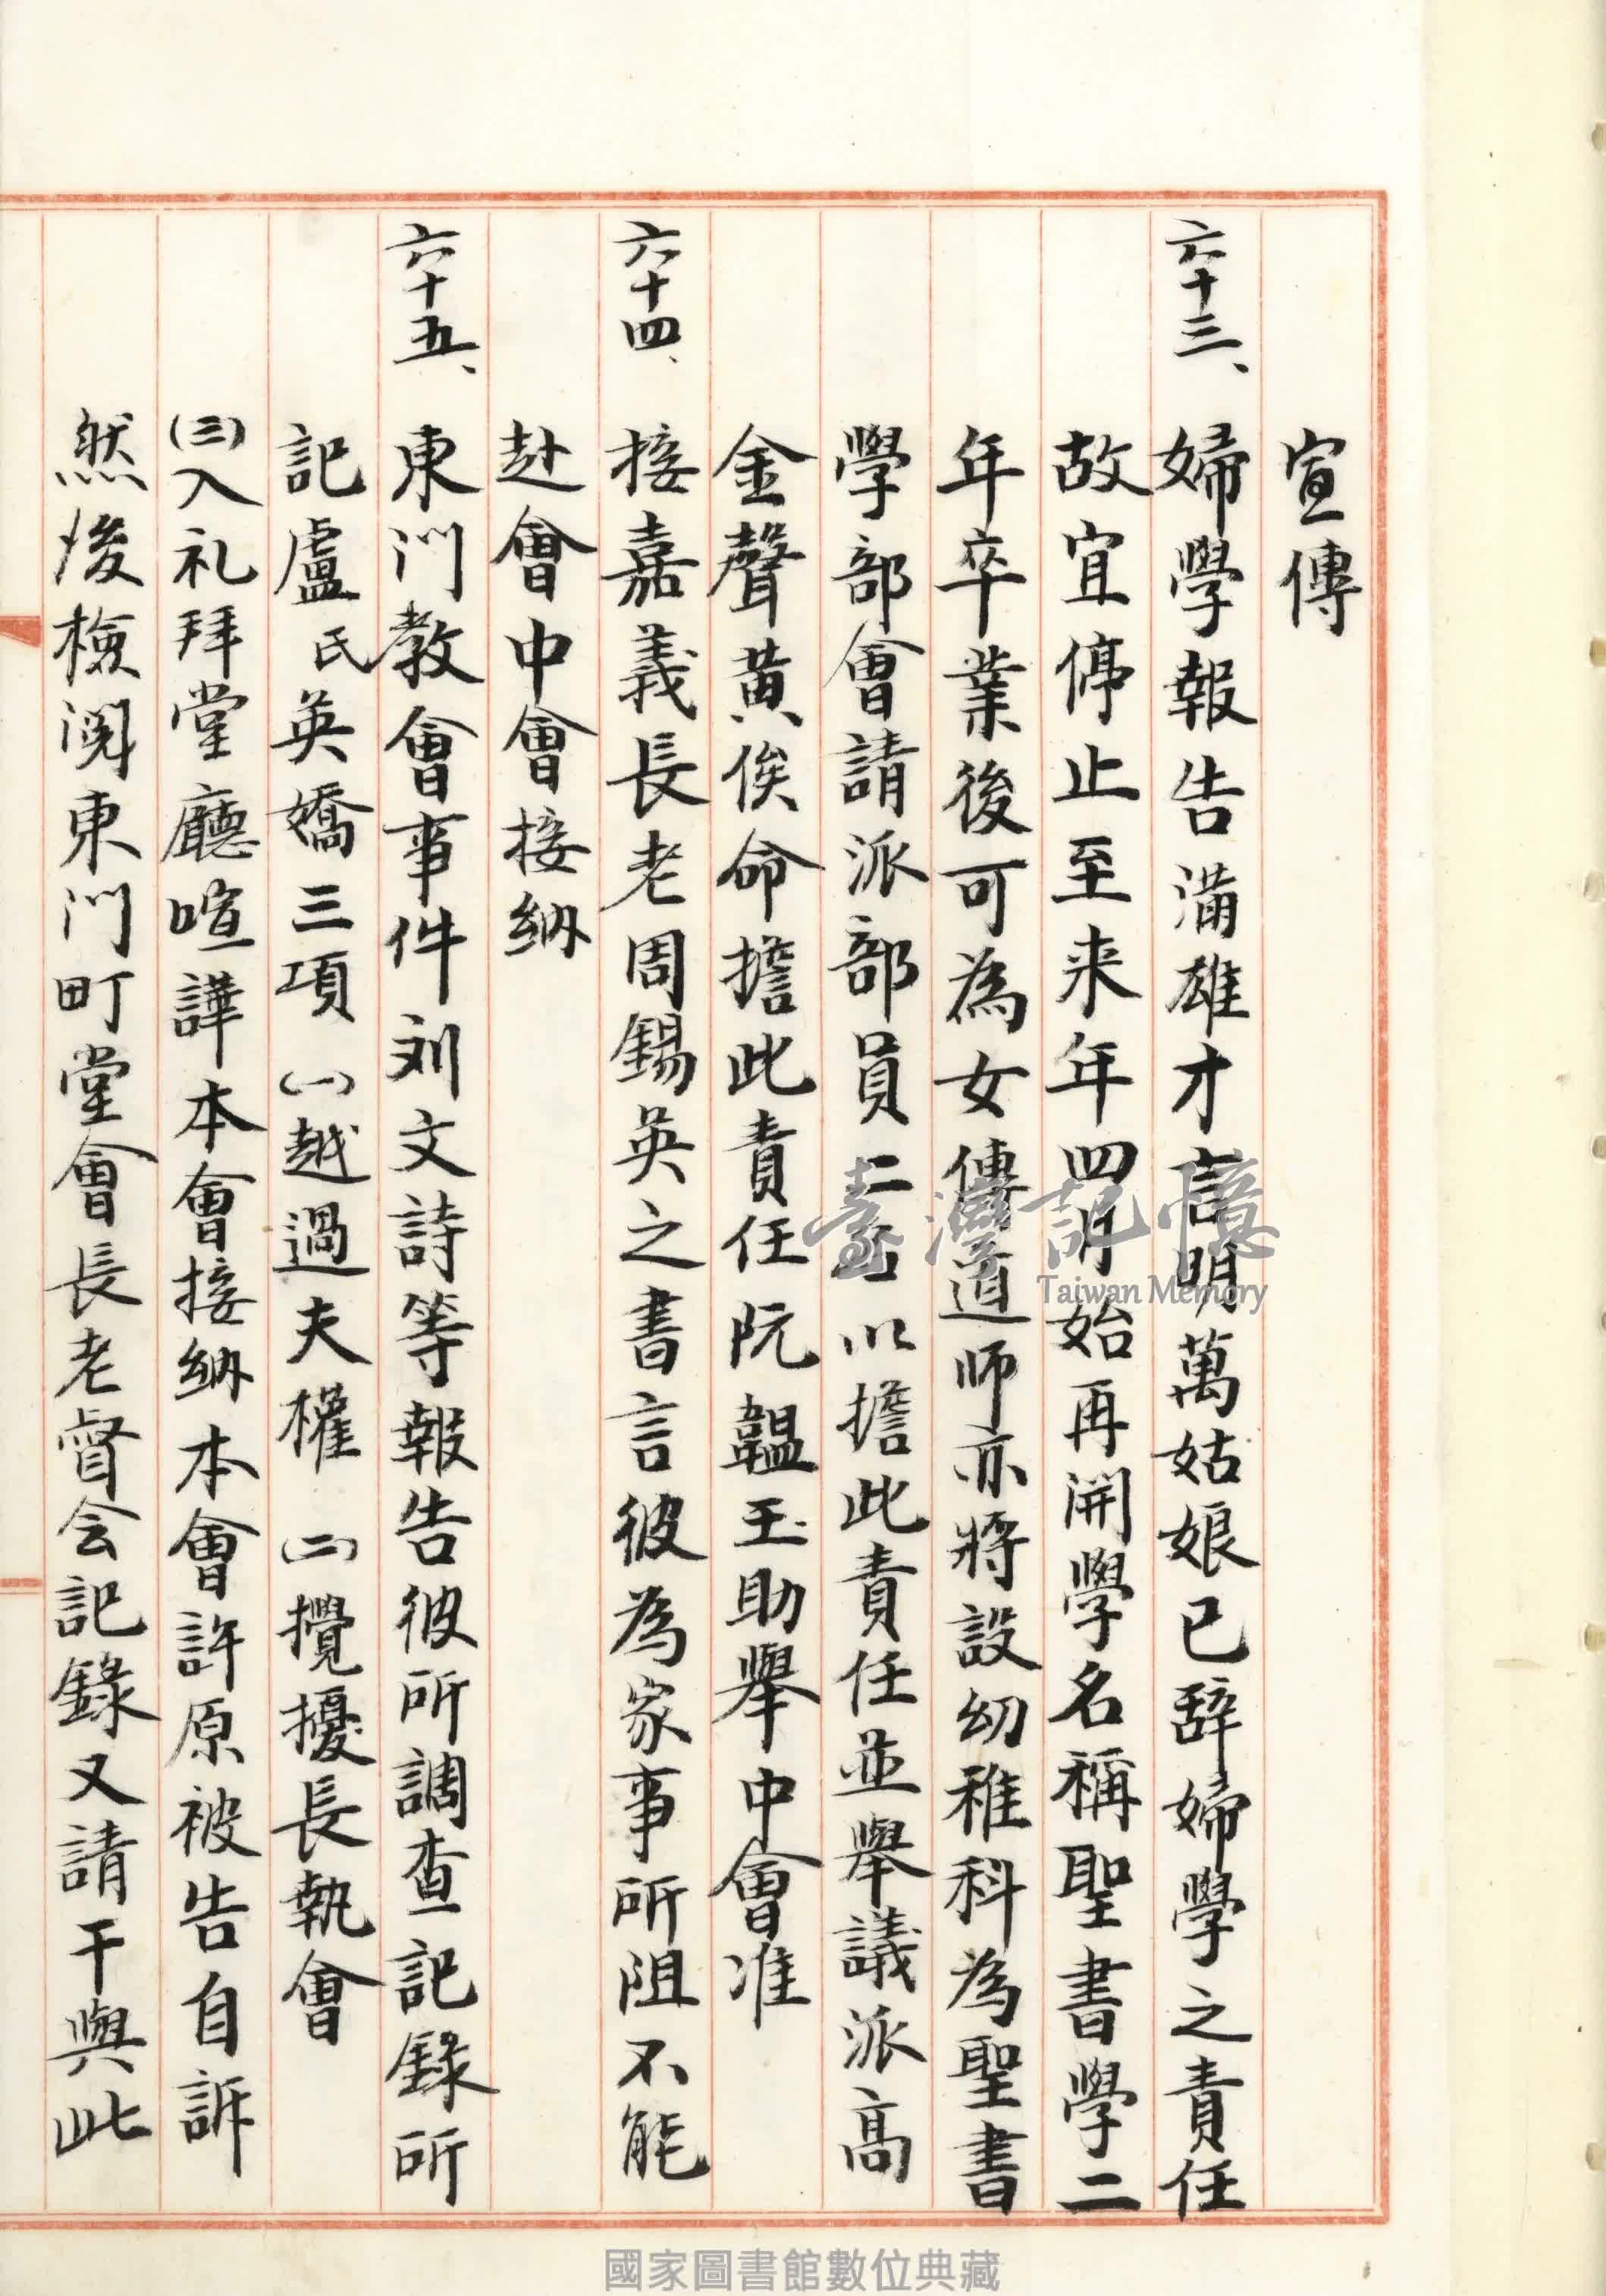 宣傳
六十三、婦學報告滿雄才言明萬姑娘已辭婦學之責任
故宜停止至来年四月始再開學名稱聖書學二
年卒業後可為女傳道师亦將設幼稚科為聖書
學部會請派部員二名以擔此責任並舉議派高
金聲黄俟命擔此責任阮韞玉助舉中會准
六十四、接嘉義長老周錫英之書言彼為家事所阻不能
赴會中會接納
六十五、東门教會事件刘文詩等報告彼所調查記錄所
記盧氏英嬌三項㈠越過夫權㈡攪擾長執會
㈢入礼拜堂廳喧譁本會接納本會許原被告自訴
然後檢閱東门町堂會長老督会記錄又請干與此
臺灣記憶
Taiwan Memory
國家圖書館數位典藏